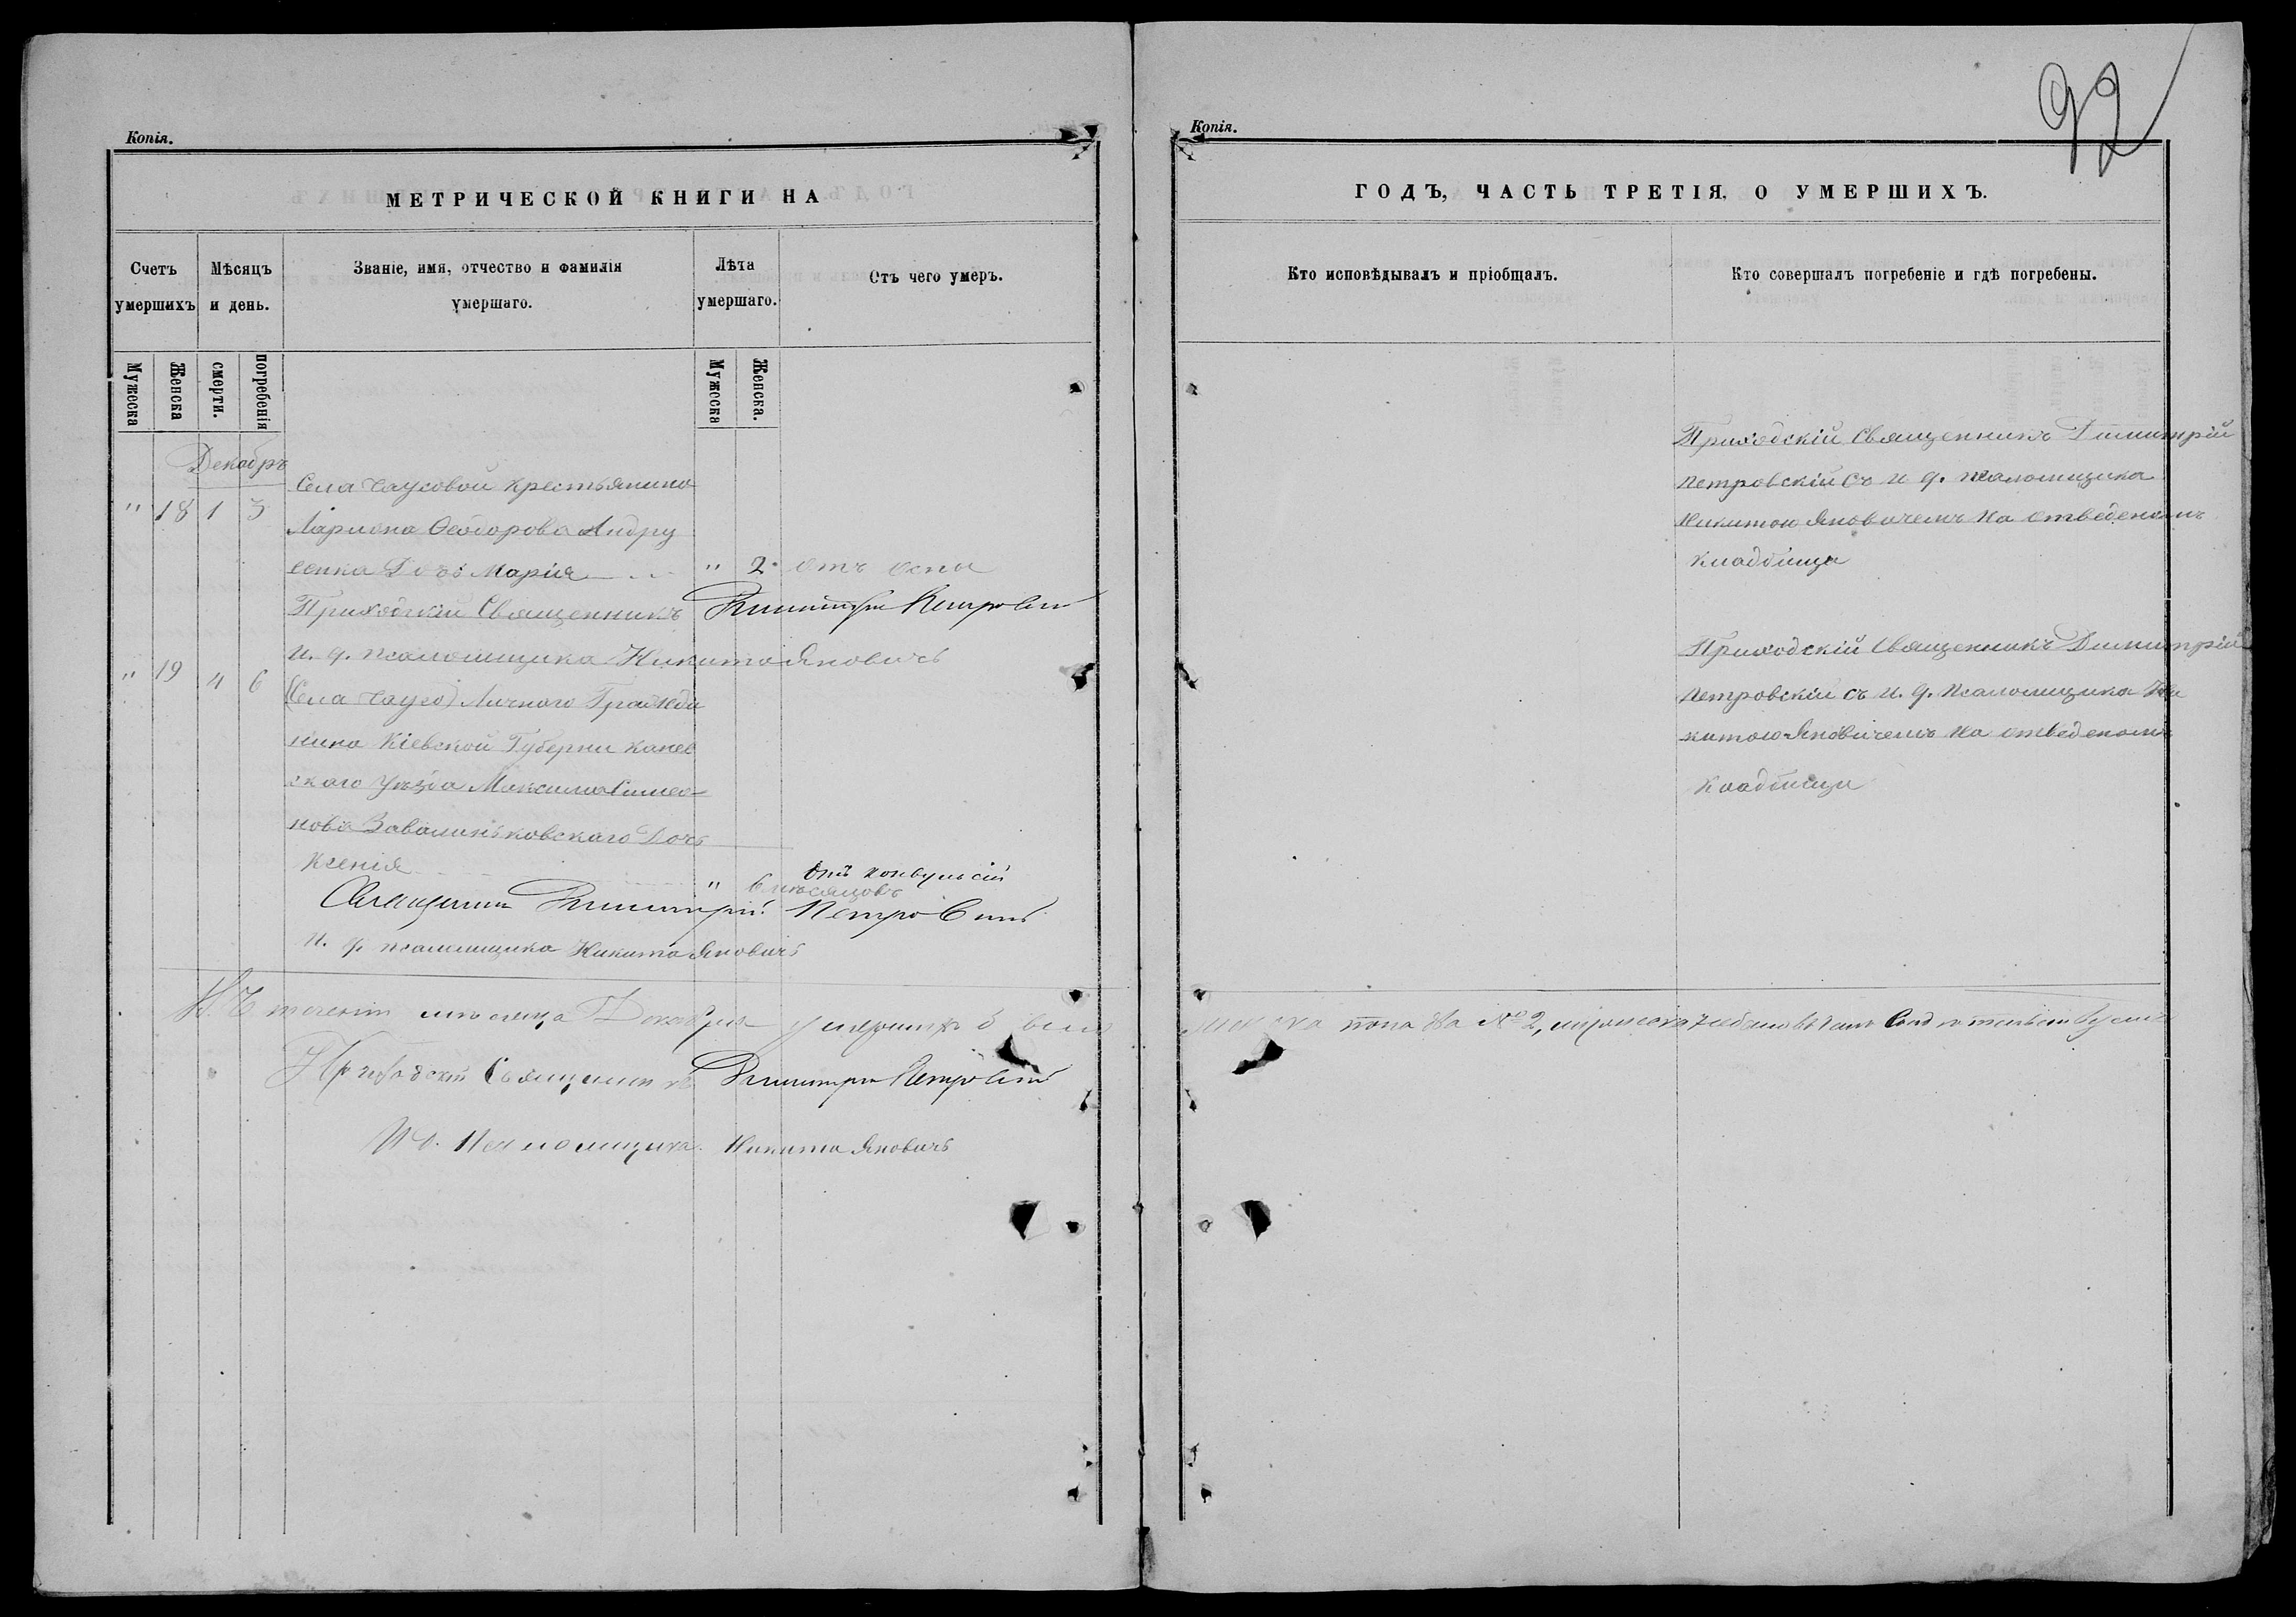 92
Копія.
МЕТРИЧЕСКОЙ КНИГИ НА
Счетъ умершихъ
Мѣсяцъ и день.
Званіе, имя, отчество и фамилія умершаго.
Лѣта умершаго.
Отъ чего умеръ.
Мужеска
Женска
смерти.
погребенія
Мужеска
Женска.
Декабрь
Села Чаусовой крестьянина
" 18 1 3
Лариона Ѳеодорова Андру
сенка Дочь Марія " 2 отъ оспы
Приходскій Священникъ Димитрій Петровскій
И. д. псаломщика Никита Яновичъ
" 19 4 6
Села Чаусо Личнаго Гражда
нина Кіевской Губерни Канев
скаго Уѣзда Максима Симео
нова Дочь
Ксенія " 6 мѣсяцовъ отъ конвульсій
Священникъ Димитрій Петровскій
И. д. псаломщика Никита Яновичъ
Копія.
ГОДЪ, ЧАСТЬ ТРЕТІЯ, О УМЕРШИХЪ.
Кто исповѣдывалъ и пріобщалъ.
Кто совершалъ погребеніе и гдѣ погребены.
Приходскій Священникъ Димитрій
Петровскій съ И. д. псаломщика
Никитою Яновичемъ на отведеномъ
кладбищи
Приходскій Священникъ Димитрій
Петровскій съ И. д. Псаломщика Ни
китою Яновичемъ на отведеномъ
кладбищи
теченіи мѣсяца Декабря умершихъ женска пола два № 2, мужеска небыло въ чемъ
Приходскій Священникъ Димитрій Петровскій
И. д. Псаломщика Никита Яновичъ